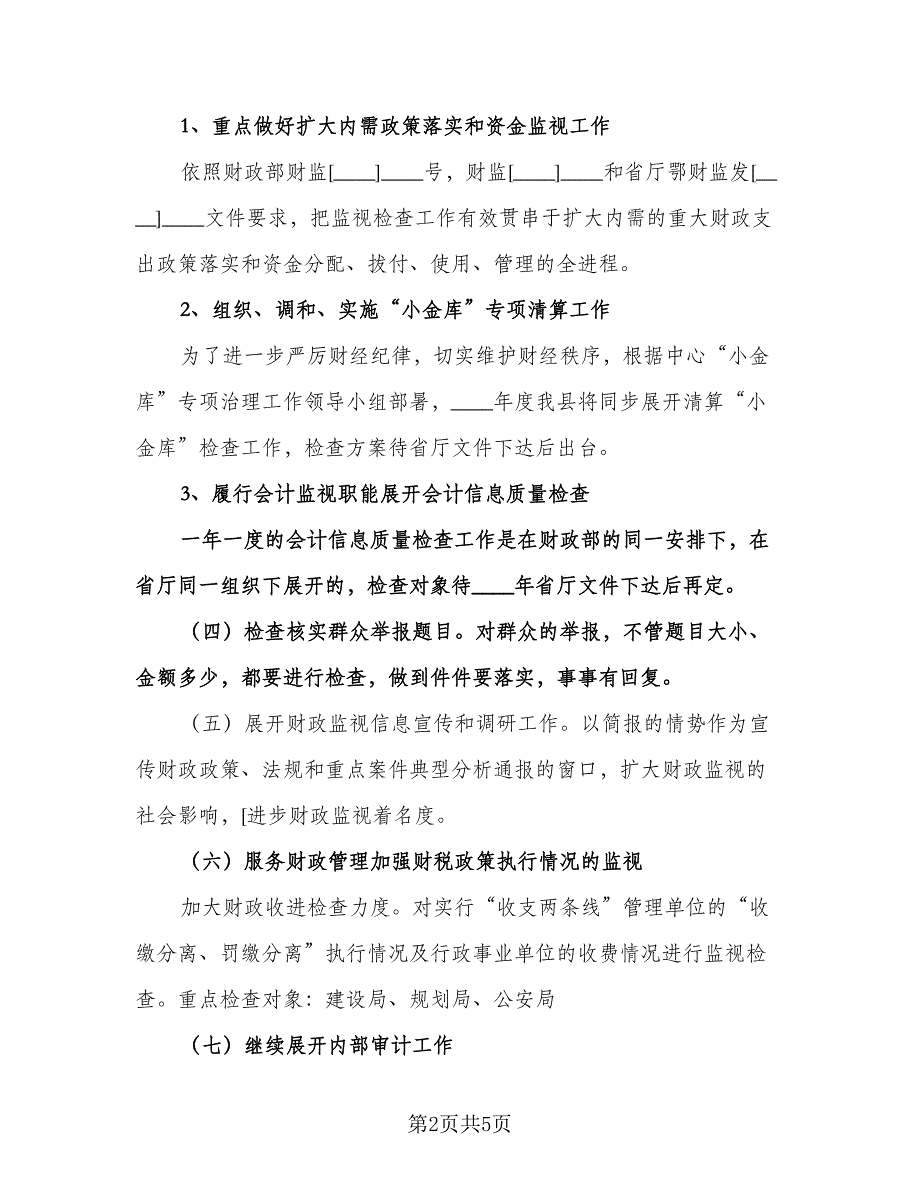 1、重点做好扩大内需政策落实和资金监视工作
依照财政部财监[____]____号，财监[____]____和省厅鄂财监发[__
__]____文件要求，把监视检查工作有效贯串于扩大内需的重大财政支
出政策落实和资金分配、拔付、使用、管理的全进程。
2、组织、调和、实施“小金库”专项清算工作
为了进一步严厉财经纪律，切实维护财经秩序，根据中心“小金
库”专项治理工作领导小组部署，____年度我县将同步展开清算“小
金库”检查工作，检查方案待省厅文件下达后出台。
3、履行会计监视职能展开会计信息质量检查
一年一度的会计信息质量检查工作是在财政部的同一安排下，在
省厅同一组织下展开的，检查对象待____年省厅文件下达后再定。
（四）检查核实群众举报题目。对群众的举报，不管题目大小、
金额多少，都要进行检查，做到件件要落实，事事有回复。
（五）展开财政监视信息宣传和调研工作。以简报的情势作为宣
传财政政策、法规和重点案件典型分析通报的窗口，扩大财政监视的
社会影响，[进步财政监视着名度。
（六）服务财政管理加强财税政策执行情况的监视
加大财政收进检查力度。对实行“收支两条线”管理单位的“收
缴分离、罚缴分离”执行情况及行政事业单位的收费情况进行监视检
查。重点检查对象：建设局、规划局、公安局
（七）继续展开内部审计工作
第2页共5页